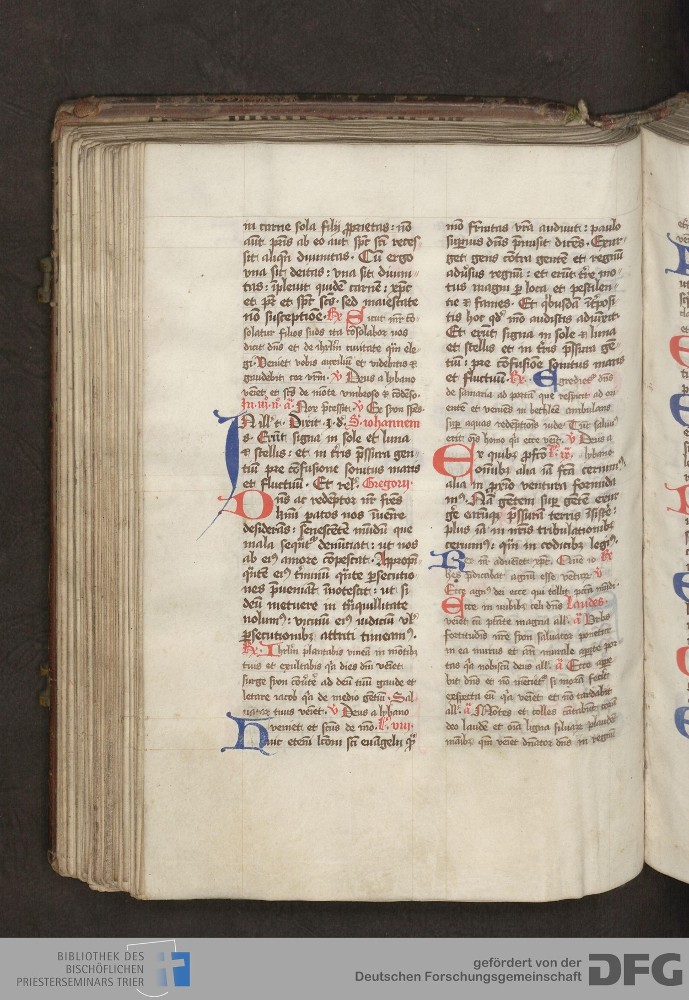 in carne sola filij ꝓprietas : nō
aūt pr̄is ab eo aut spc̄ sc̄i reces
sit aliqn̄ diuinitas · Cū ergo
vna sit deitas : vna sit diuini
tas : īpleuit quidē carnē : xpc̄
et pr̄ et spc̄ sc̄s · sed maiestate
nō susceptiōe · Rx Sicut mr̄ cō
solatur filios suos ita cōsolabor vos
dicit dn̄s et de ihrlm̄ ciuitate qm̄ ele
gi · Veniet vobis auxiliū et videbitis et
gaudebit cor vr̄m · v̄ Deus a lybano
veniet et sc̄s de mōte vmbroso et cōdēso ·
Nox p̄cessit · v̄ Ex syon spēs
N ill' t · Dixit · S · iohannem
s · Erūt signa in sole et luna
et stellis : et in tr̄is p̄ssura gen
tiū pre cōfusione sonitus maris
et fluctuū · Et rel · Gregorij ·
Dn̄s ac redēptor nr̄ fr̄es
kīmi patos nos īuenire
desiderās : senescētē mūdū que
mala sequāt' denūciat : ut nos
ab ei9 amore cōpescat · Appropī
quātē ei9 t'minū quāte ꝑsecutio
nes p̄ueniāt īnotescat : ut si
deū metuere in trāquillitate
nolum9 : vicinū ei9 iudiciū vl'
ꝑsecutionibꝫ attriti timeam9 ·
Rx Ihrlm̄ plantabis vineā in mōtibꝫ
tuis et exultabis q̄a dies dn̄i veniet
surge syon cōūtē ad deū tuū gaude et
letare iacob q̄a de medio gētiū · Sal
uator tuus veniet · v̄ Deus a lybano
veniet et sc̄us de mō · L° viii ·
Huic etenī lc̄oni sc̄i euāgelij
mō fraitas vr̄a audiuit : paulo
suꝑius dn̄s p̄misit dicēs · Exur
get gens cōtra gentē et regnū
aduīsus regnū : et erūt t're mo
tus magni ꝑ loca et pestilen
tie et fames · Et q'busdā īt'posi
tis hoc qd' mō audistis adiūxit ·
Et erūt signa in sole et luna
et stellis et in tr̄is p̄ssura gē
tiū : pre cōfusiōe sonitus maris
et fluctuū · Rx · Egrediet' dn̄s
de samaria ad portā que respicit ad ori
entē et veniet in bethleē ambulans
suꝑ aquas redēptiōis iude · Tūc saluus
erit oīs homo q̄a ecce veniet · v̄ Deus a
Ex quibꝫ ꝓfcō · lybano ·
omībꝫ alia iā fcā cernim9
alia in ꝓxīo ventura formida
m9 · Nā gētem suꝑ gētē exur
ge eārūqꝫ p̄ssurā terris īsistē :
plus iā in nr̄is tribulationibꝫ
cernim9 : qm̄ in codicibꝫ legim9 ·
adueniet xpc̄
hes p̄dicabat agnū esse
Ecce agn9 dei ecce qui tollit pccā mūdi ·
Ecce in nubibꝫ celi dn̄s Laudes ·
veniet cū ptāte magna all' · ā Vrbs
fortitudīs nr̄e syon saluator ponetur
in ea murus et āte murale aꝑite por
tas q̄a nobiscū deus all' · ā Ecce appe
bit dn̄s et nō mentiet' si morā fecerit
exspecta eū q̄a veniet et nō tardabit
all' · ā Mōtes et colles cātabūt corā
deo laudē et oīa ligna siluarꝫ plaudēt
manibꝫ qm̄ veniet dn̄ator dn̄s in regnū
BIBLIOTHEK DES
BISCHÖFLICHEN
PRIESTERSEMINARS TRIER
gefördert von der
Deutschen Forschungsgemeinschaft
DFG